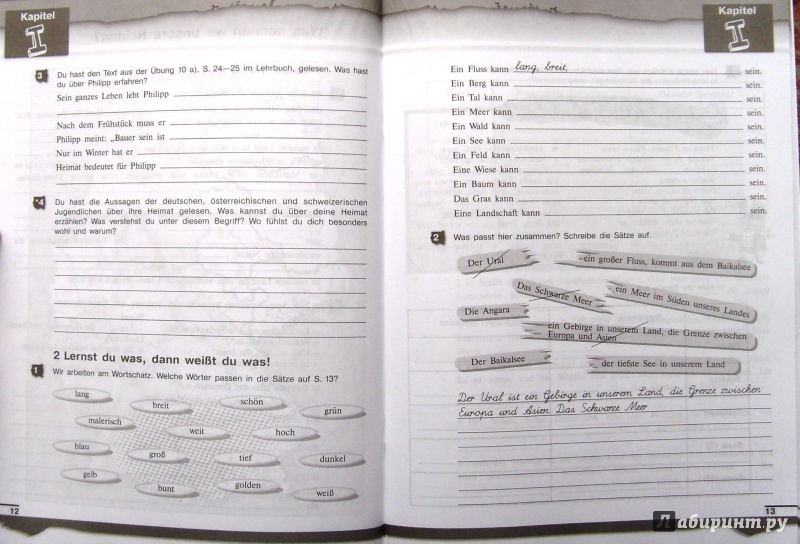 Kapitel
I
3 Du hast den Text aus der Übung 10 a), S. 24—25 im Lehrbuch, gelesen. Was hast
du über Philipp erfahren?
Sein ganzes Leben lebt Philipp
Nach dem Frühstück muss er
Philipp meint: „Bauer sein ist
Nur im Winter hat er
Heimat bedeutet für Philipp
*4 Du hast die Aussagen der deutschen, österreichischen und schweizerischen
Jugendlichen über ihre Heimat gelesen. Was kannst du über deine Heimat
erzählen? Was verstehst du unter diesem Begriff? Wo fühlst du dich besonders
wohl und warum?
2 Lernst du was, dann weißt du was!
1 Wir arbeiten am Wortschatz. Welche Wörter passen in die Sätze auf S. 13?
lang
breit
schön
grün
malerisch
weit
hoch
blau
groß
tief
dunkel
gelb
bunt
golden
weiß
12
Kapitel
I
Ein Fluss kann lang, breit, sein.
Ein Berg kann sein.
Ein Tal kann sein.
Ein Meer kann sein.
Ein Wald kann sein.
Ein See kann sein.
Ein Feld kann sein.
Eine Wiese kann sein.
Ein Baum kann sein.
Das Gras kann sein.
Eine Landschaft kann sein.
2 Was passt hier zusammen? Schreibe die Sätze auf.
Der Ural
ein großer Fluss, kommt aus dem Baikalsee
Das Schwarze Meer
ein Meer im Süden unseres Landes
Die Angara
ein Gebirge in unserem Land, die Grenze zwischen
Europa und Asien
Der Baikalsee
der tiefste See in unserem Land
Der Ural ist ein Gebirge in unserem Land, die Grenze zwischen
Europa und Asien. Das Schwarze Meer
13
Лабиринт.ру